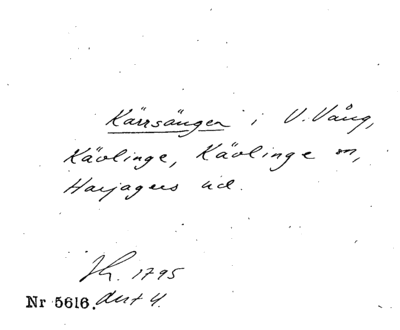 Kärrsängen i V. Vång,
Kävlinge, Kävlinge m,
Harjagers hd.
1795
Nr 5616.